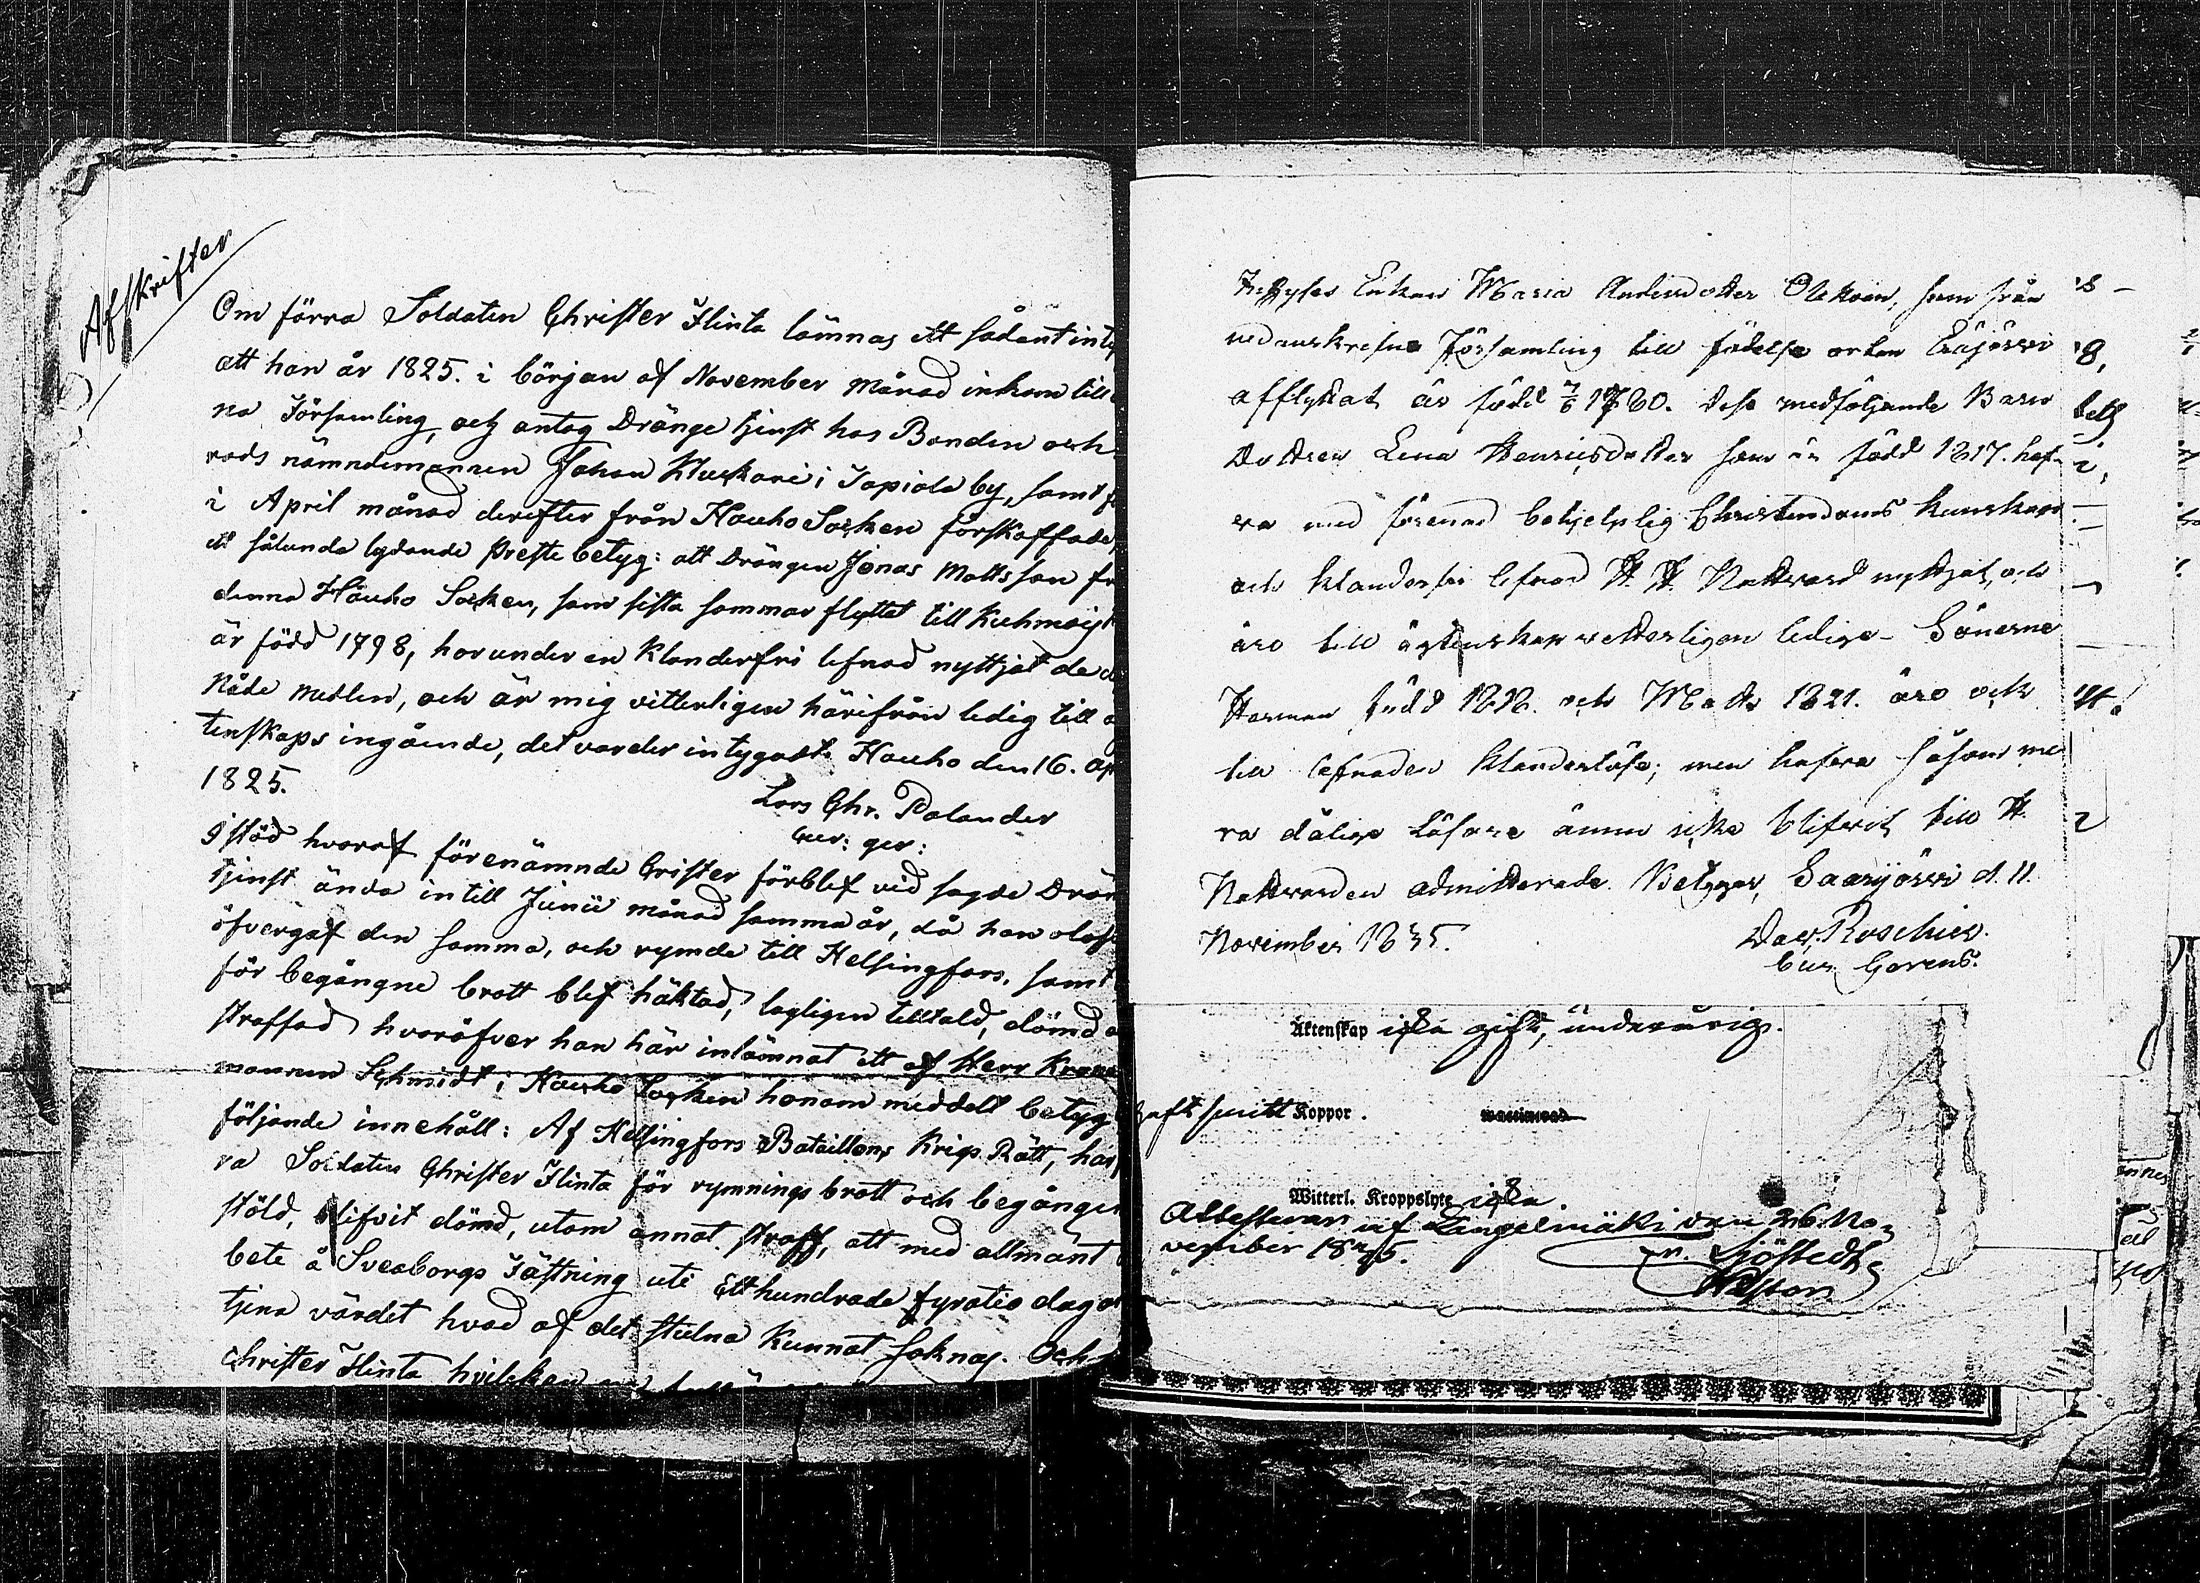 Afskrifter
Om förra Soldaten Christer Flinta lämnas ett sådant inty
att han år 1825. i början af November månad inkom till
na Församling, och antog Dränge tjenst hos Bonden och
rads nämndemannen Johan Kluckari i Tapiola by, samt
i April månad derefter från Hauho Socken förskaffade
ett sålunda lydande Preste betyg: att Drängen Jonas Mattsson fr
denna Hauho Socken, som sista sommar flyttat till Kuhmois
är född 1798, har under en klanderfri lefnad nyttjat de
Nåde medlen, och är mig vitterligen härifrån ledig till
tenskaps ingående, det varder intygadt. Hauho den 16. Ap
1825.
Lars Chr. Polander
Cur: ger:
I stöd hvaraf förenämnde Crister förblef vid sagde Drän
tjenst ända intill Junii månad samma år, då han olof
öfvergaf den samma, och rymde till Helsingfors, samt
för begångne brott blef häktad, lagligen tilltald, dömd
straffad hvaröfver han här inlämnat ett af Herr Krono
mannen Schmidt i Hauho Socken honom meddelt betyg
följande innehåll: Af Helsingfors Bataillons Krigs Rätt, har
ra Soldaten Christer Flinta för rymnings brott och begången
stöld, blifvit dömd, utom annat straff, att med allmänt
bete å Sveaborgs Fästning uti Etthundrade fyratio dagar
tjena värdet hvad af det stulna kunnat saknas. Och
Christer Flinta hvilken
Enkan Maria Andersdotter Olikain, som från
nedanskrefne Församling till födelse orten
afflyttat är född 7/6 1780. dess medföljande Barn
Dottren Lena Henricsdotter som är född 1817. haf-
va med förenad behjelplig Christendoms kunskap
och klanderfri lefnad H. H. Nattvard nyttjat, och
äro till ägtenskap vetterligen lediga - Sönerne
Herman född 1818. och Matts 1821. äro ock
till lefnaden klanderlöse; men hafva såsom me
ra dålige Läsare ännu icke blifvit till H.
Nattvarden admitterade. Betygar, Saarijärvi d. 11.
November 1835.
Dav. Roschier.
Cur Gerens.
Äktenskap icke gift, underårig.
haft smitt Koppor.
Witterl. Kroppslyte icke.
Attesteras af Längelmäki den 26 No-
vember 1845.
Sjöstedt
Pastor